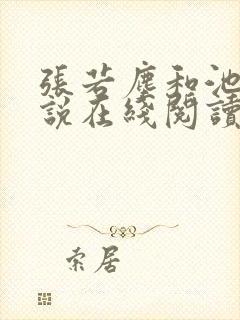 張若塵和池
說在綫閱讀
索居